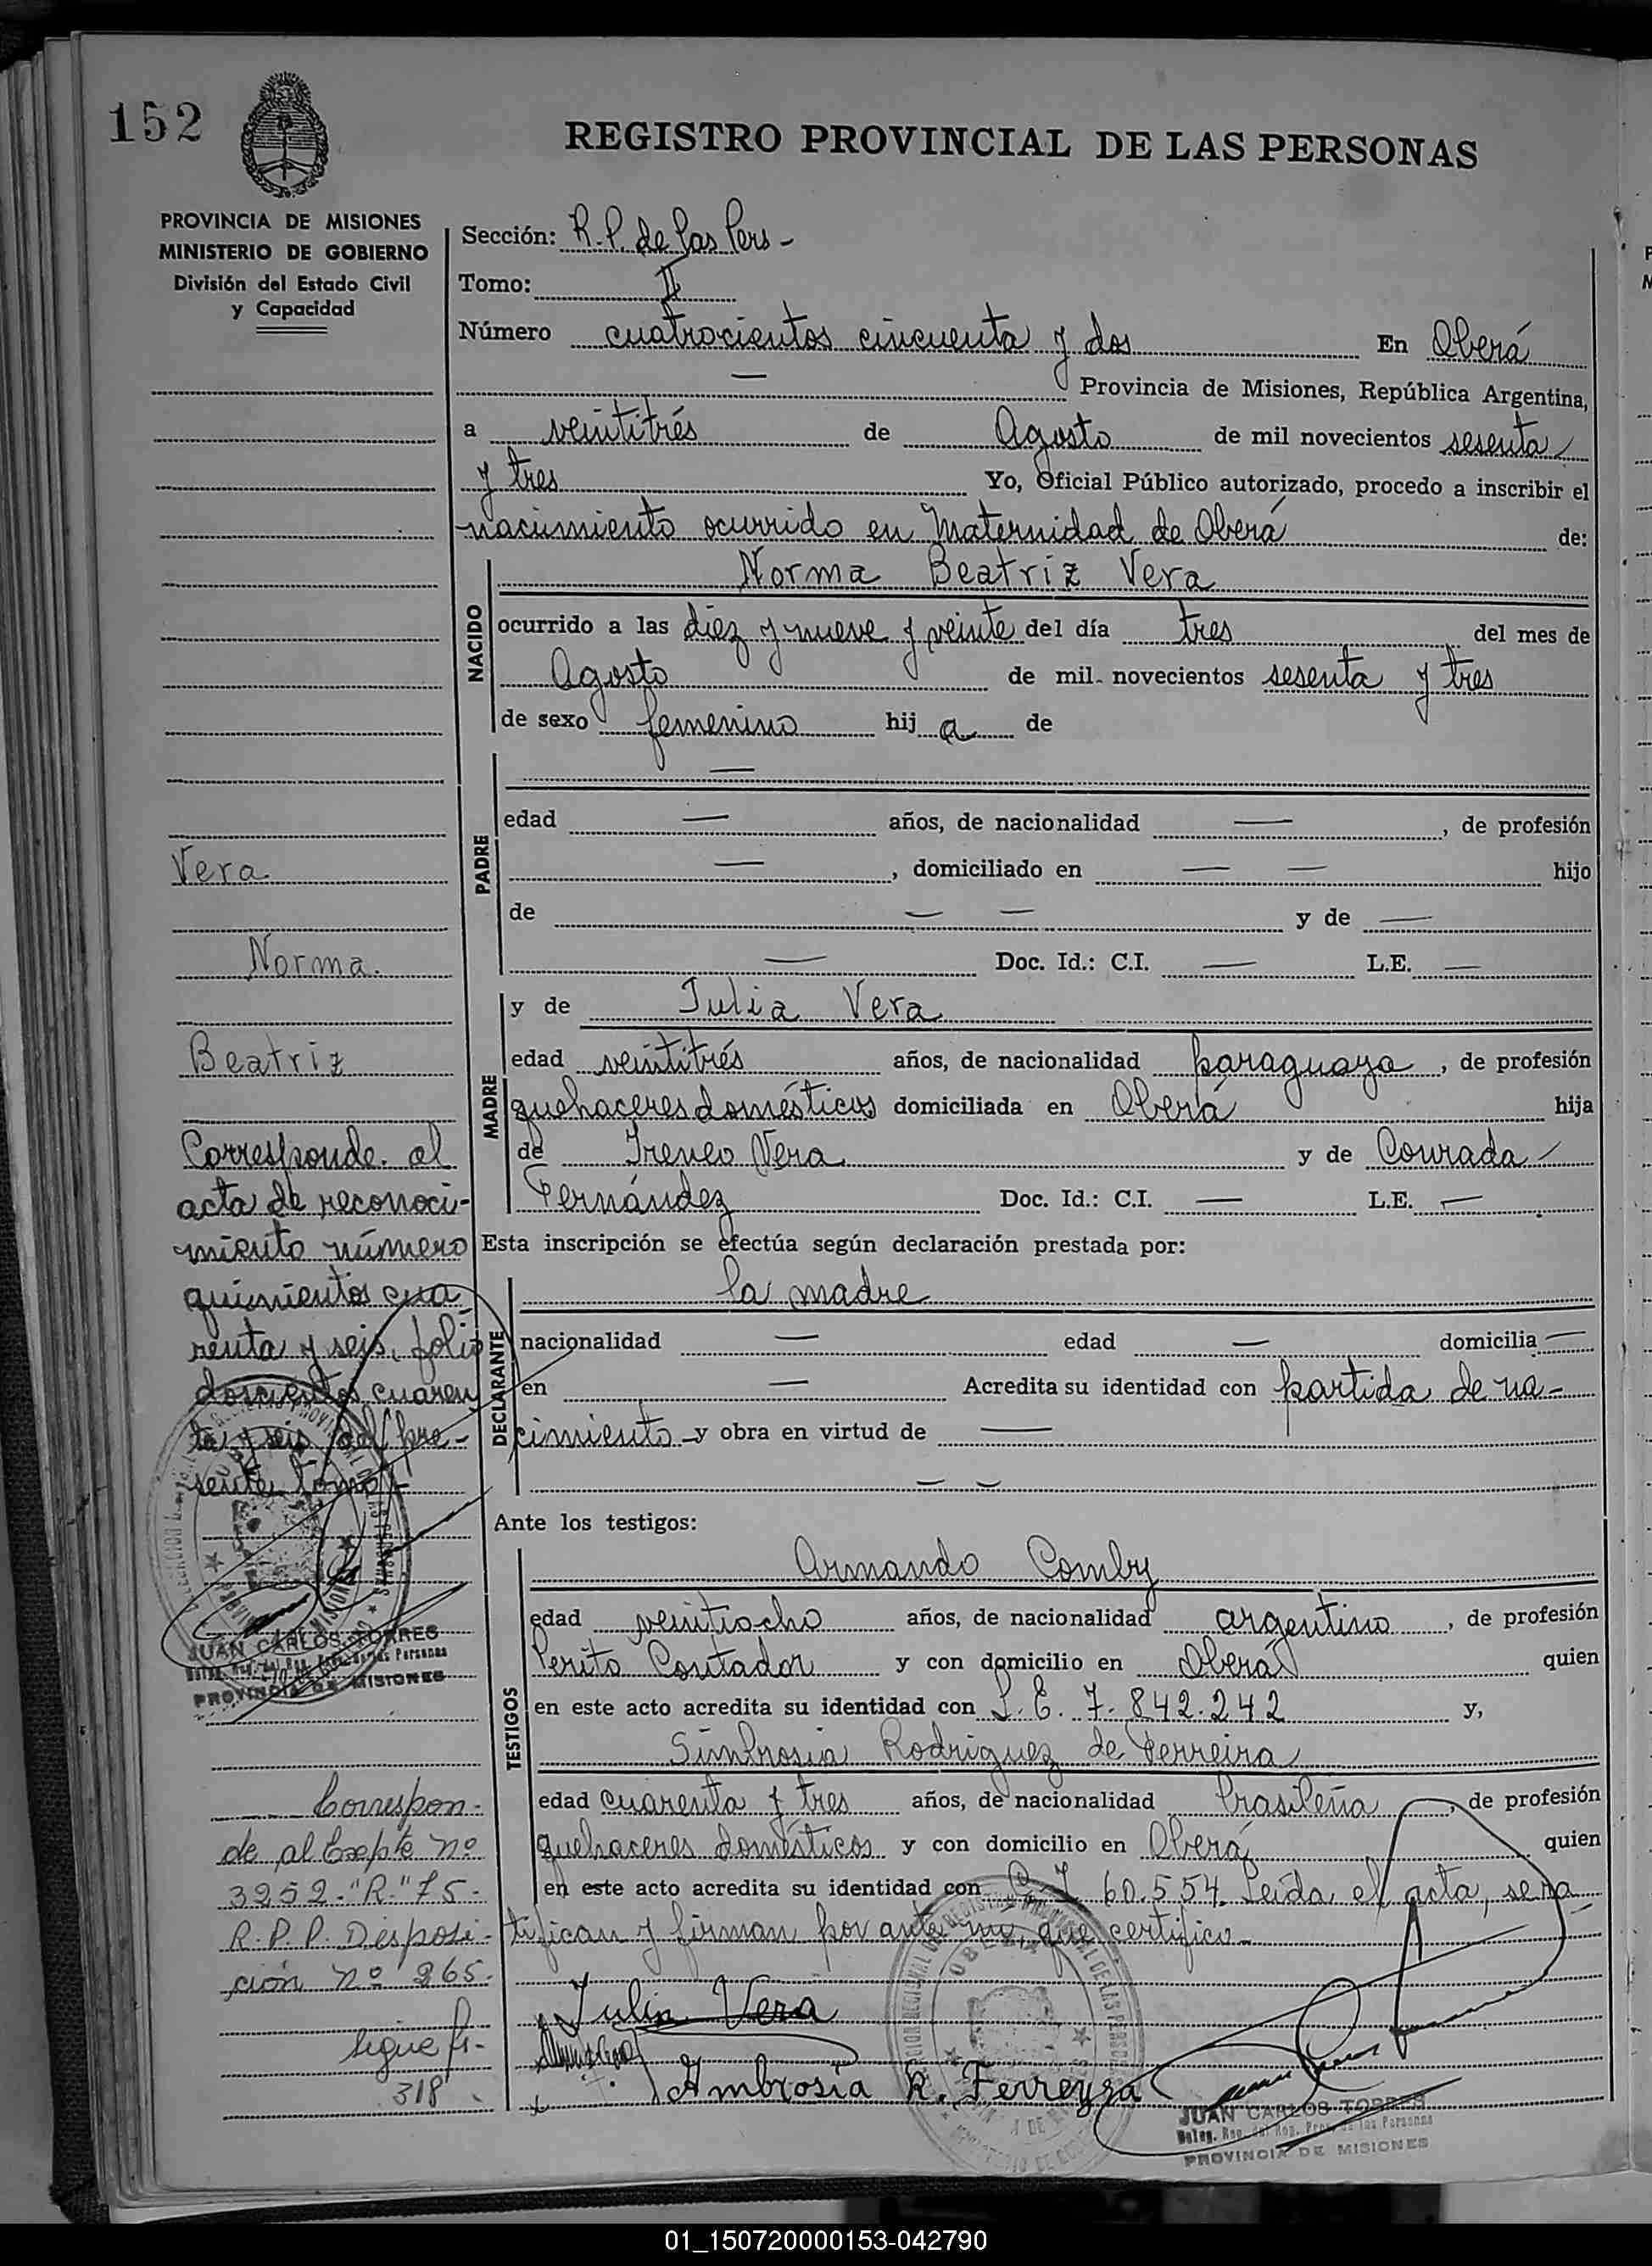 152
REGISTRO PROVINCIAL DE LAS PERSONAS
PROVINCIA DE MISIONES
MINISTERIO DE GOBIERNO
División del Estado Civil
y Capacidad
Sección: R.P. de las Pers -
Tomo: II
Número cuatrocientos cincuenta y dos En Oberá
— Provincia de Misiones, República Argentina,
a veintitrés de Agosto de mil novecientos sesenta
y tres Yo, Oficial Público autorizado, procedo a inscribir el
nacimiento ocurrido en Maternidad de Oberá de:
NACIDO
Norma Beatriz Vera
ocurrido a las diez y nueve y veinte del día tres del mes de
Agosto de mil novecientos sesenta y tres
de sexo femenino hij a de
PADRE
—
edad — años, de nacionalidad —, de profesión
—, domiciliado en — — hijo
de — — y de —
— Doc. Id.: C.I. — L.E. —
MADRE
y de Julia Vera
edad veintitrés años, de nacionalidad paraguaya, de profesión
quehaceres domésticos domiciliada en Oberá hija
de Ireneo Vera y de Conrada
Fernández Doc. Id.: C.I. — L.E. —
Esta inscripción se efectúa según declaración prestada por:
DECLARANTE
la madre
nacionalidad — edad — domicilia —
en — Acredita su identidad con partida de na-
cimiento y obra en virtud de —
— —
Ante los testigos:
TESTIGOS
Armando Comby
edad veintiocho años, de nacionalidad argentino, de profesión
Perito Contador y con domicilio en Oberá quien
en este acto acredita su identidad con L.E. 7.842.242 y,
Rodriguez de Ferreira
edad cuarenta y tres años, de nacionalidad brasileña, de profesión
quehaceres domésticos y con domicilio en Oberá quien
en este acto acredita su identidad con C. I. 60.554. Leída el acta, se ra
tifican y firman por ante mi, que certifico -
Julia Vera
Ambrosia R. Ferreyra
JUAN CARLOS TORRES
PROVINCIA DE MISIONES
Vera
Norma.
Beatriz
Corresponde al
acta de reconoci-
miento número
quinientos cua
renta y seis, folio
doscientos cuaren
ta y seis del pre-
sente tomo
JUAN CARLOS TORRES
PROVINCIA DE MISIONES
Correspon-
de al Expte nº
3252-"R"75-
R.P.P. Disposi-
ción nº 265-
Sigue fs-
318
01_150720000153-042790